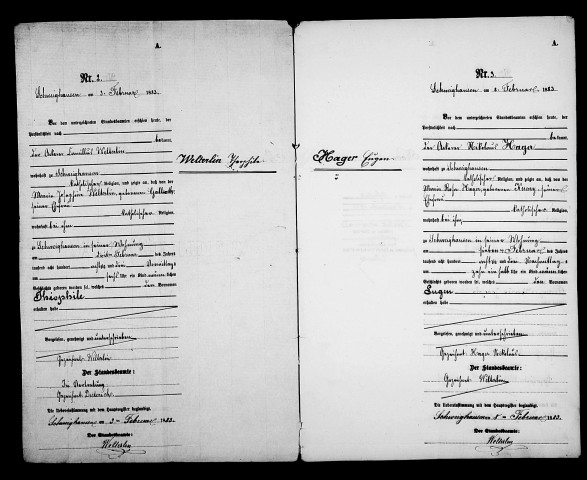 A.
Nr. 2.
Schweighausen am 3. Februar 1883.
Vor dem unterzeichneten Standesbeamten erschien heute, der
Persönlichkeit nach
bekannt,
der Ackerer Camillus Welterlin
wohnhaft zu Schweighausen
katholischer Religion, und zeigte an, daß von der
Maria Josephine Welterlin, geborenen
seiner Ehefrau
katholischer Religion,
wohnhaft bei ihm
zu Schweighausen in seiner Wohnung
am dritten Februar des Jahres
tausend acht hundert achtzig und drei Vormittags
um sechs Uhr ein Kind männlichen
Geschlechts geboren worden sei, welches den Vornamen
Théophile
erhalten habe
Vorgelesen, genehmigt und unterschrieben
Gezeichnet: Welterlin
Der Standesbeamte:
In Vertretung
Gezeichnet:
Die Uebereinstimmung mit dem Hauptregister beglaubigt.
Schweighausen am 3. Februar 1883.
Der Standesbeamte:
Welterlin
Welterlin Théophile
Hager Eugen
A.
Nr. 3.
Schweighausen am 8. Februar 1883.
Vor dem unterzeichneten Standesbeamten erschien heute, der
Persönlichkeit nach
bekannt,
der Ackerer Nikolaus Hager
wohnhaft zu Schweighausen
katholischer Religion, und zeigte an, daß von der
Maria Rosa Hager, geborenen seiner
Ehefrau
katholischer Religion,
wohnhaft bei ihm
zu Schweighausen in seiner Wohnung
am siebten Februar des Jahres
tausend acht hundert achtzig und drei Nachmittags
um zehn ein halb Uhr ein Kind männlichen
Geschlechts geboren worden sei, welches den Vornamen
Eugen
erhalten habe
Vorgelesen, genehmigt und unterschrieben
Gezeichnet: Hager Nikolaus
Der Standesbeamte:
Gezeichnet: Welterlin
Die Uebereinstimmung mit dem Hauptregister beglaubigt.
Schweighausen am 8. Februar 1883.
Der Standesbeamte:
Welterlin